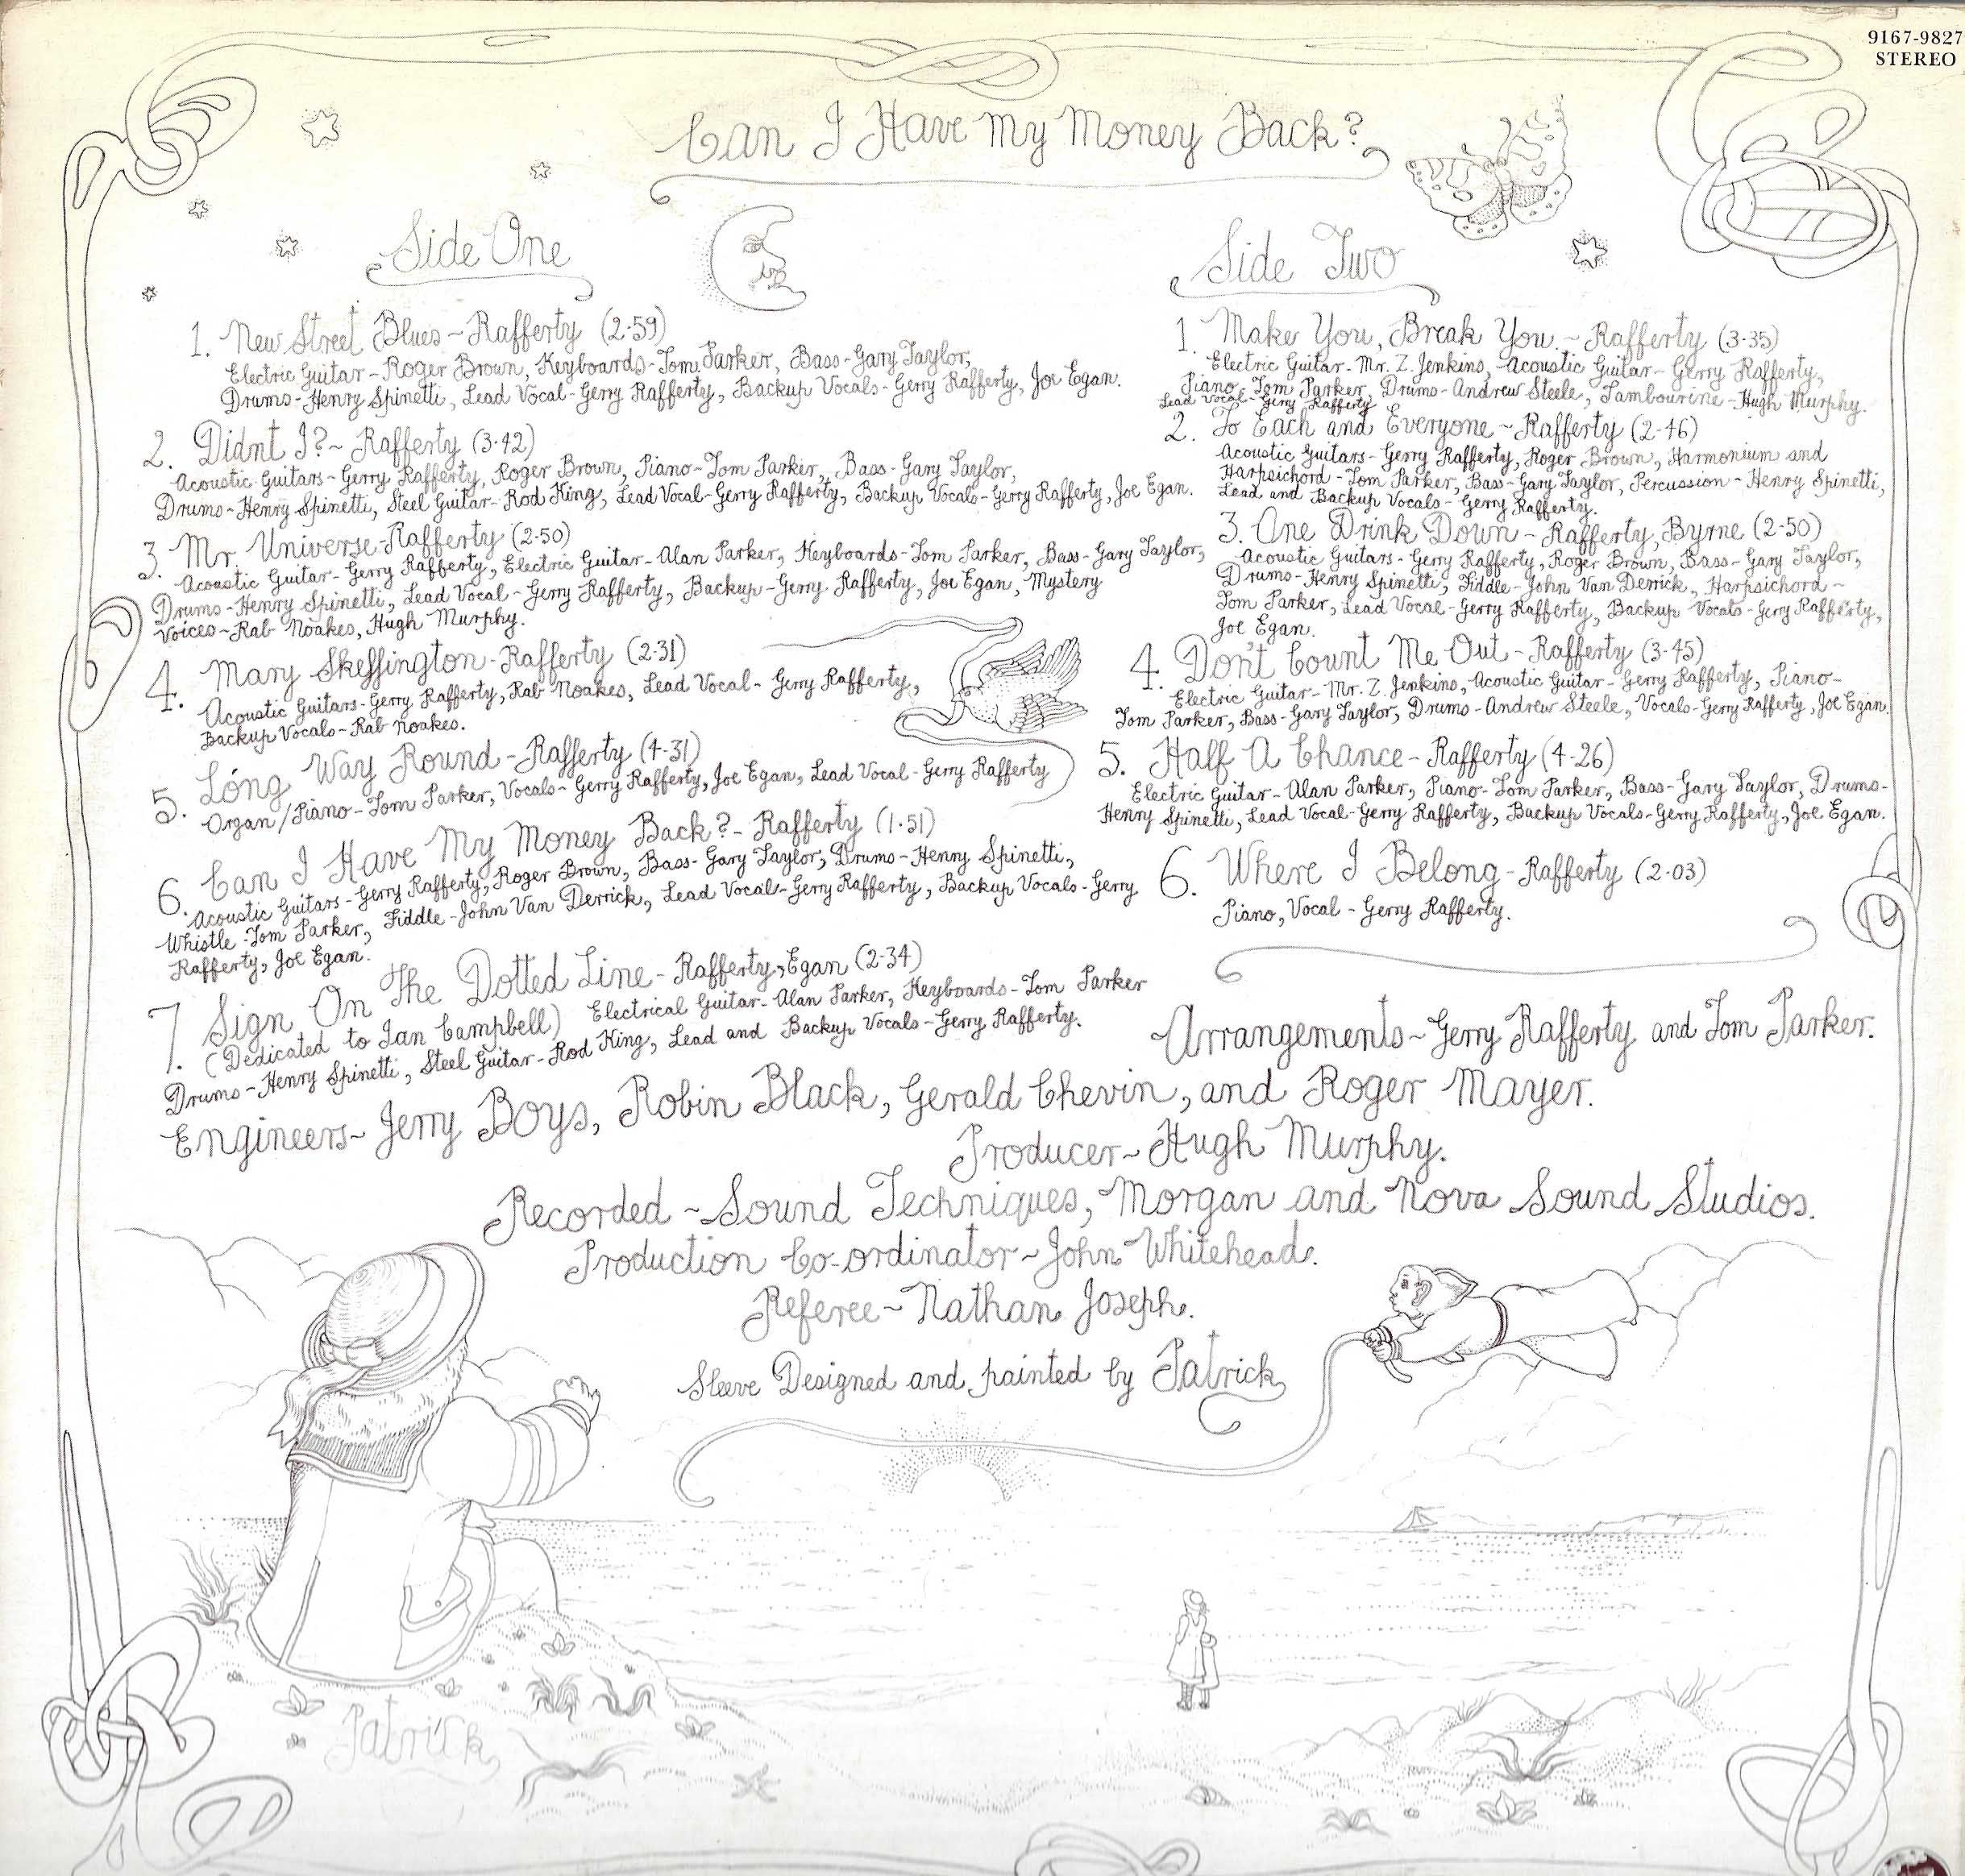 9167-9827
STEREO
Can I Have My Money Back?
Side One
1. New Street Blues ~ Rafferty (2·59)
Electric Guitar - Roger Brown, Keyboards - Tom Parker, Bass - Gary Taylor,
Drums - Henry Spinetti, Lead Vocal - Gerry Rafferty, Backup Vocals - Gerry Rafferty, Joe Egan.
2. Didnt I? ~ Rafferty (3·42)
Acoustic Guitars - Gerry Rafferty, Roger Brown, Piano - Tom Parker, Bass - Gary Taylor,
Drums - Henry Spinetti, Steel Guitar - Rod King, Lead Vocal - Gerry Rafferty, Backup Vocals - Gerry Rafferty, Joe Egan.
3. Mr. Universe - Rafferty (2·50)
Acoustic Guitar - Gerry Rafferty, Electric Guitar - Alan Parker, Keyboards - Tom Parker, Bass - Gary Taylor,
Drums - Henry Spinetti, Lead Vocal - Gerry Rafferty, Backup - Gerry Rafferty, Joe Egan, Mystery
Voices - Rab Noakes, Hugh Murphy.
4. Mary Skeffington - Rafferty (2·31)
Acoustic Guitars - Gerry Rafferty, Rab Noakes, Lead Vocal - Gerry Rafferty,
Backup Vocals - Rab Noakes.
5. Long Way Round - Rafferty (4·31)
Organ/Piano - Tom Parker, Vocals - Gerry Rafferty, Joe Egan, Lead Vocal - Gerry Rafferty
6. Can I Have My Money Back? - Rafferty (1·51)
Acoustic Guitars - Gerry Rafferty, Roger Brown, Bass - Gary Taylor, Drums - Henry Spinetti,
Whistle - Tom Parker, Fiddle - John Van Derrick, Lead Vocal - Gerry Rafferty, Backup Vocals - Gerry
Rafferty, Joe Egan.
7. Sign On The Dotted Line - Rafferty, Egan (2·34)
(Dedicated to Ian Campbell) Electrical Guitar - Alan Parker, Keyboards - Tom Parker
Drums - Henry Spinetti, Steel Guitar - Rod King, Lead and Backup Vocals - Gerry Rafferty.
Side Two
1. Make You, Break You ~ Rafferty (3·35)
Electric Guitar - Mr. Z. Jenkins, Acoustic Guitar - Gerry Rafferty,
Piano - Tom Parker, Drums - Andrew Steele, Tambourine - Hugh Murphy.
Lead Vocal - Gerry Rafferty
2. To Each and Everyone ~ Rafferty (2·46)
Acoustic Guitars - Gerry Rafferty, Roger Brown, Harmonium and
Harpsichord - Tom Parker, Bass - Gary Taylor, Percussion - Henry Spinetti,
Lead and Backup Vocals - Gerry Rafferty.
3. One Drink Down ~ Rafferty, Byrne (2·50)
Acoustic Guitars - Gerry Rafferty, Roger Brown, Bass - Gary Taylor,
Drums - Henry Spinetti, Fiddle - John Van Derrick, Harpsichord -
Tom Parker, Lead Vocal - Gerry Rafferty, Backup Vocals - Gerry Rafferty,
Joe Egan.
4. Don't Count Me Out - Rafferty (3·45)
Electric Guitar - Mr. Z. Jenkins, Acoustic Guitar - Gerry Rafferty, Piano -
Tom Parker, Bass - Gary Taylor, Drums - Andrew Steele, Vocals - Gerry Rafferty, Joe Egan.
5. Half A Chance - Rafferty (4·26)
Electric Guitar - Alan Parker, Piano - Tom Parker, Bass - Gary Taylor, Drums -
Henry Spinetti, Lead Vocal - Gerry Rafferty, Backup Vocals - Gerry Rafferty, Joe Egan.
6. Where I Belong - Rafferty (2·03)
Piano, Vocal - Gerry Rafferty.
Arrangements ~ Gerry Rafferty and Tom Parker.
Engineers ~ Jerry Boys, Robin Black, Gerald Chevin, and Roger Mayer.
Producer ~ Hugh Murphy.
Recorded ~ Sound Techniques, Morgan and Nova Sound Studios.
Production Co-ordinator ~ John Whitehead.
Referee ~ Nathan Joseph.
Sleeve Designed and painted by Patrick
Patrick